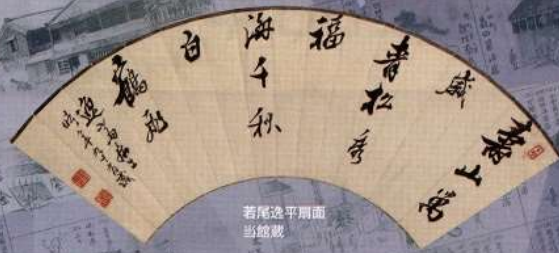 壽山萬
歳
青松秀
福
海千秋
白
鶴飛
若尾逸平扇面
当館蔵